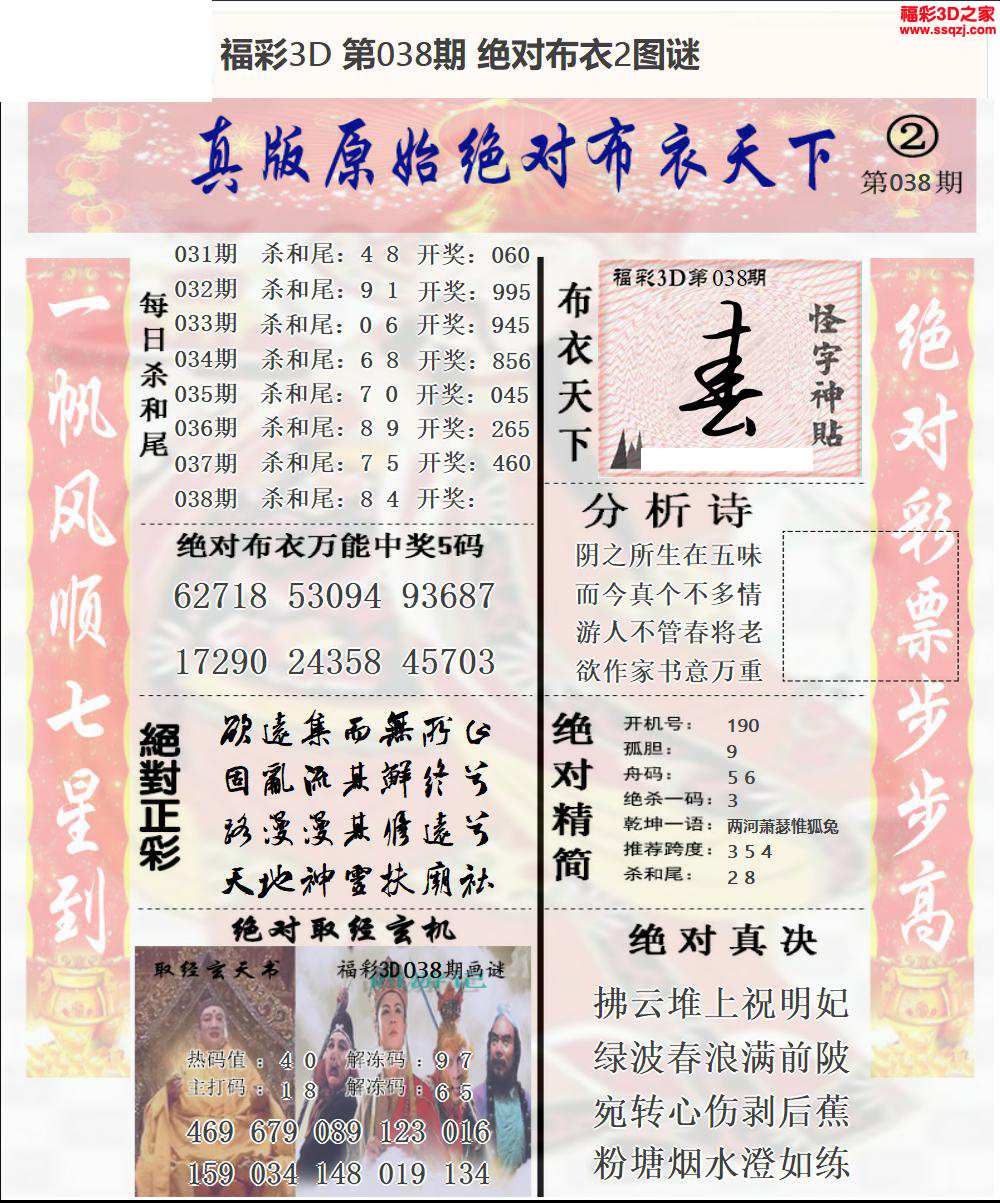 福彩3D之家
www.ssqzj.com
福彩3D 第038期 绝对布衣2图谜
真版原始绝对布衣天下
②
第038期
一帆风顺七星到
每日杀和尾
031期 杀和尾：4 8 开奖：060
032期 杀和尾：9 1 开奖：995
033期 杀和尾：0 6 开奖：945
034期 杀和尾：6 8 开奖：856
035期 杀和尾：7 0 开奖：045
036期 杀和尾：8 9 开奖：265
037期 杀和尾：7 5 开奖：460
038期 杀和尾：8 4 开奖：
绝对布衣万能中奖5码
62718 53094 93687
17290 24358 45703
絕對正彩
欲遠集而無所止
固亂流其鮮終兮
路漫漫其修遠兮
天地神靈扶廟社
绝对取经玄机
取经玄天书
福彩3D038期画谜
热码值：4 0 解冻码：9 7
主打码：1 8 解冻码：6 5
469 679 089 123 016
159 034 148 019 134
布衣天下
福彩3D第038期
怪字神貼
分析诗
阴之所生在五味
而今真个不多情
游人不管春将老
欲作家书意万重
绝对精简
开机号：190
孤胆：9
舟码：5 6
绝杀一码：3
乾坤一语：两河萧瑟惟狐兔
推荐跨度：3 5 4
杀和尾：2 8
绝对真决
拂云堆上祝明妃
绿波春浪满前陂
宛转心伤剥后蕉
粉塘烟水澄如练
绝对彩票步步高